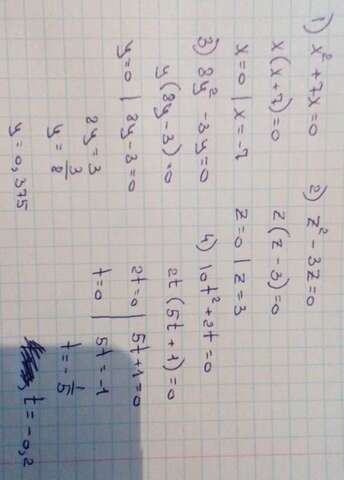 1) x² + 7x = 0
x(x+7) = 0
x = 0 | x = -7
2) z² - 3z = 0
z(z-3) = 0
z = 0 | z = 3
3) 8y² - 3y = 0
y(8y-3) = 0
y = 0 | 8y-3 = 0
8y = 3
y = 3/8
y = 0,375
4) 10t² + 2t = 0
2t(5t+1) = 0
2t = 0 | 5t+1 = 0
t = 0 | 5t = -1
t = -1/5
t = -0,2